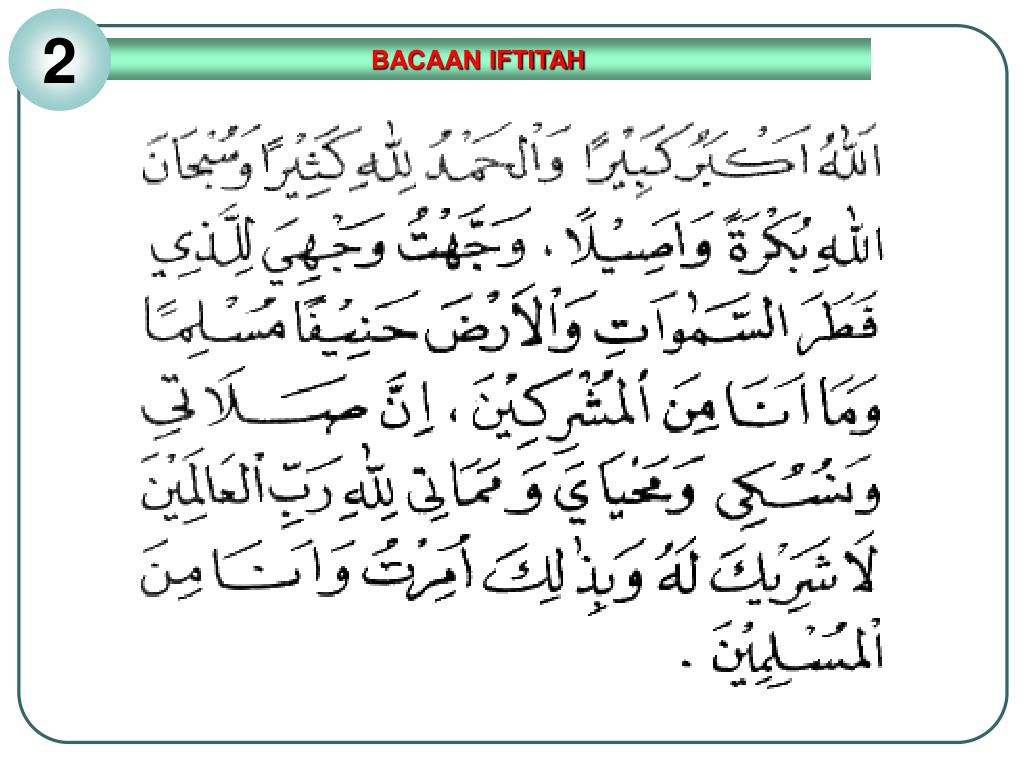 2
BACAAN IFTITAH
اَللّٰهُ اَكْبَرُ كَبِيْرًا وَالْحَمْدُ لِلّٰهِ كَثِيْرًا وَسُبْحَانَ
اللّٰهِ بُكْرَةً وَاَصِيْلًا . وَجَّهْتُ وَجْهِيَ لِلَّذِي
فَطَرَ السَّمٰوَاتِ وَالْاَرْضَ حَنِيْفًا مُسْلِمًا
وَمَا اَنَا مِنَ الْمُشْرِكِيْنَ ، اِنَّ صَلَاتِي
وَنُسُكِي وَمَحْيَايَ وَمَمَاتِي لِلّٰهِ رَبِّ الْعَالَمِيْنَ
لَا شَرِيْكَ لَهُ وَبِذٰلِكَ اُمِرْتُ وَاَنَا مِنَ
الْمُسْلِمِيْنَ .